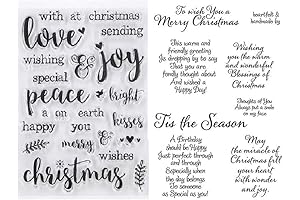 with at christmas
sending
love
wishing & joy
special
peace bright
a on earth
kisses
happy you
merry &
wishes
christmas
To wish You a
Merry Christmas
heartfelt &
handmade by
This warm and
friendly greeting
Is dropping by to
Say that you are
fondly thought About
And wished a
Happy Day!
Wishing
you the
warm and
wonderful
Blessings of
Christmas
Thoughts of You
Always put a smile
on my face
Tis the Season
A Birthday
should be Happy
Just perfect through
and through
Especially when
the day belongs
To someone as
Special as you!
May
the miracle of
Christmas fill
your heart
with wonder
and joy.